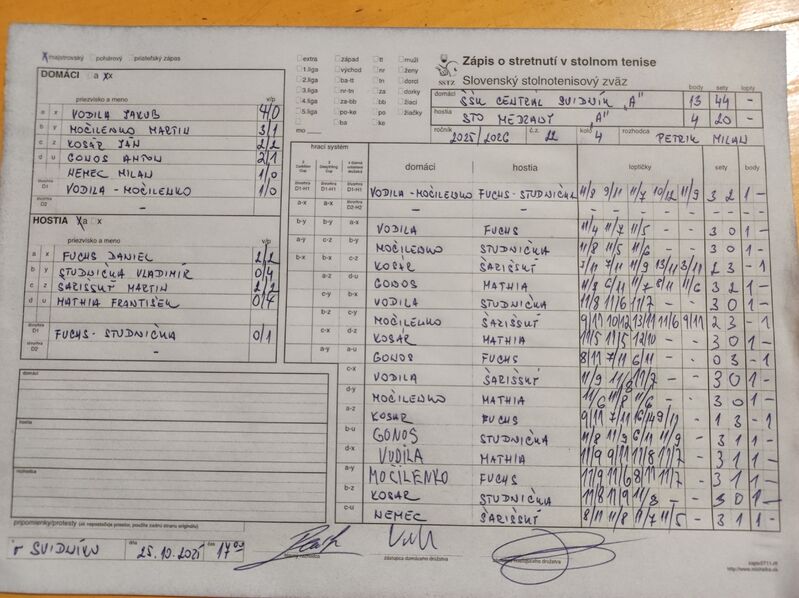 X majstrovský pohárový priateľský zápas
DOMÁCI a x
priezvisko a meno v/p
a x VODILA JAKUB 4/0
b y MOČILENKO MARTIN 3/1
c z KOSÁR JÁN 2/2
d u GONOS ANTON 2/1
NEMEC MILAN 1/0
štvorhra D1 VODILA - MOČILENKO 1/0
štvorhra D2 -
HOSTIA a x
priezvisko a meno v/p
a x FUCHS DANIEL 2/2
b y STUDNIČKA VLADIMÍR 0/4
c z ŠARIŠSKÝ MARTIN 2/2
d u MATHIA FRANTIŠEK 0/4
štvorhra D1 FUCHS - STUDNIČKA 0/1
štvorhra D2 -
domáci
hostia
rozhodca
pripomienky/protesty (ak nepostačuje priestor, použite zadnú stranu originálu)
extra západ tt muži
1.liga východ nr ženy
2.liga ba-tt tn dorci
3.liga nr-tn za dorky
4.liga za-bb bb žiaci
5.liga po-ke po žiačky
ba ke
mo
SSTZ
Zápis o stretnutí v stolnom tenise
Slovenský stolnotenisový zväz
body sety lopty
domáci ŠŠK CENTRÁL SVIDNÍK "A" 13 44 -
hostia STO MEDZANY "A" 4 20 -
ročník 2025/2026 č.z. 22 kolo 4 rozhodca PETRIK MILAN
hrací systém
domáci hostia loptičky sety body
VODILA - MOČILENKO FUCHS - STUDNIČKA 11/8 9/11 11/7 10/12 11/9 3 2 1 -
- - - - - - - - - - -
VODILA FUCHS 11/4 11/7 11/5 - - 3 0 1 -
MOČILENKO STUDNIČKA 11/8 11/5 11/6 - - 3 0 1 -
KOSÁR ŠARIŠSKÝ 7/11 11/9 13/11 3/11 2 3 - 1
GONOS MATHIA 11/8 6/11 11/7 8/11 11/6 3 2 1 -
VODILA STUDNIČKA 11/8 11/6 11/7 - - 3 0 1 -
MOČILENKO ŠARIŠSKÝ 9/11 10/12 13/11 11/6 9/11 2 3 - 1
KOSÁR MATHIA 11/5 11/5 12/10 - - 3 0 1 -
GONOS FUCHS 8/11 7/11 6/11 - - 0 3 - 1
VODILA ŠARIŠSKÝ 11/9 11/8 11/7 - - 3 0 1 -
MOČILENKO MATHIA 11/6 11/8 11/6 - - 3 0 1 -
KOSÁR FUCHS 9/11 7/11 9/11 - 1 3 - 1
GONOS STUDNIČKA 11/8 11/9 6/11 11/9 - 3 1 1 -
VODILA MATHIA 11/9 9/11 11/8 11/7 - 3 1 1 -
MOČILENKO FUCHS 11/9 11/6 8/11 11/7 - 3 1 1 -
KOSÁR STUDNIČKA 11/8 11/9 11/8 - - 3 0 1 -
NEMEC ŠARIŠSKÝ 8/11 11/8 11/7 11/5 - 3 1 1 -
v SVIDNÍKU dňa 25.10.2025 čas 17:00
hlavný rozhodca zástupca domáceho družstva
http://www.stolnytenis.sk